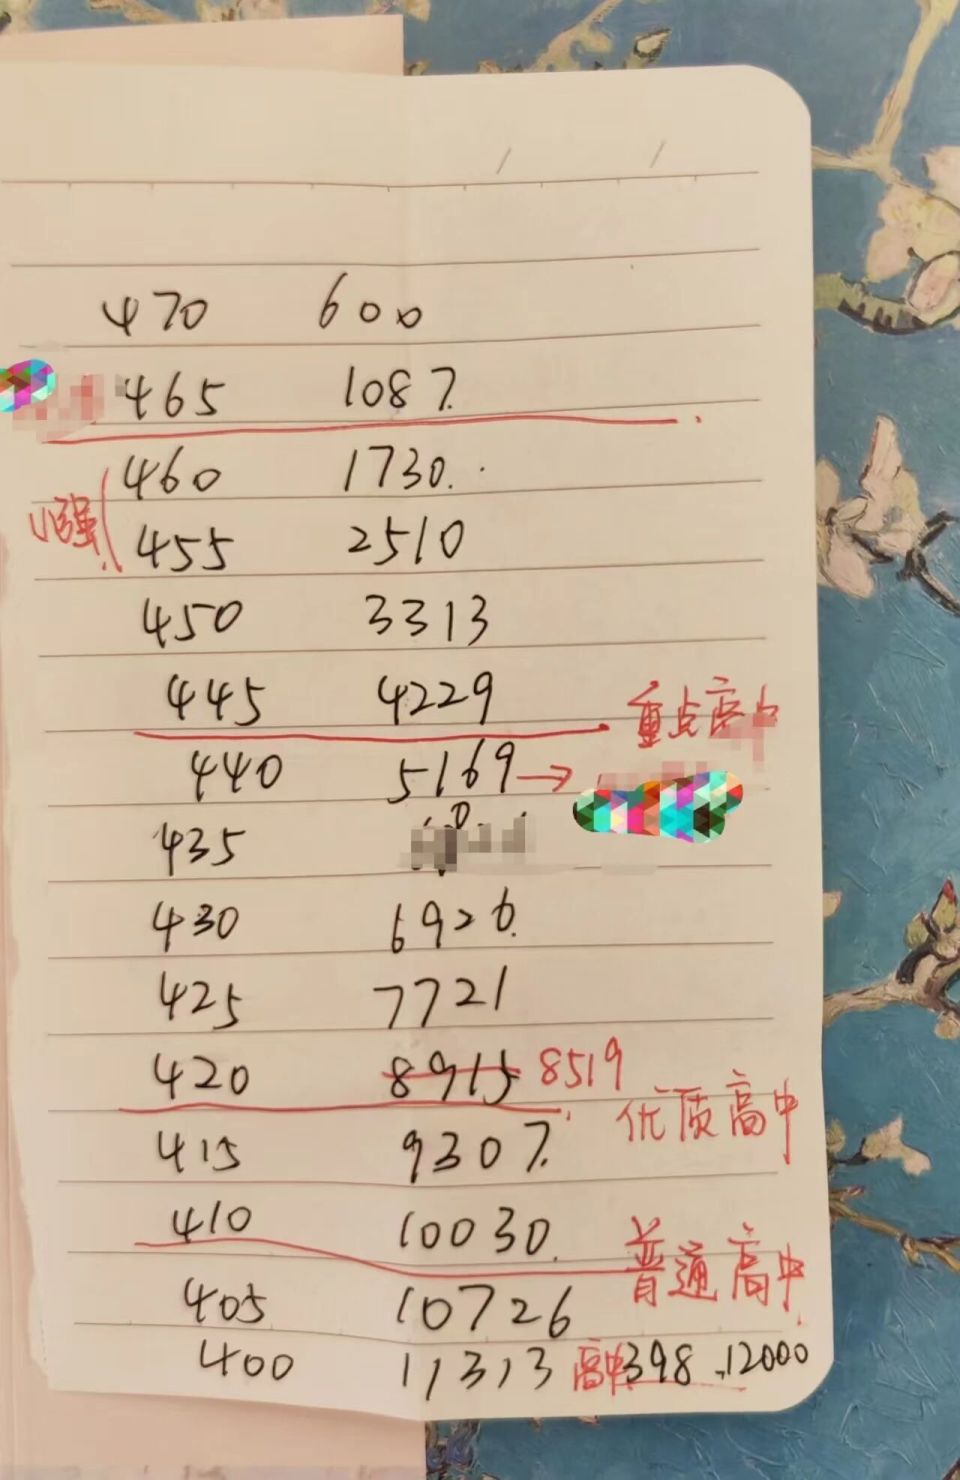 470 600
465 1087.
460 1730.
小强
455 2510
450 3313
445 4229
重点高中
440 5169→
435
430 6926.
425 7721
420 8915 8519
优质高中
415 9307.
410 10030.
普通高中
405 10726
400 11313 高中398 12000